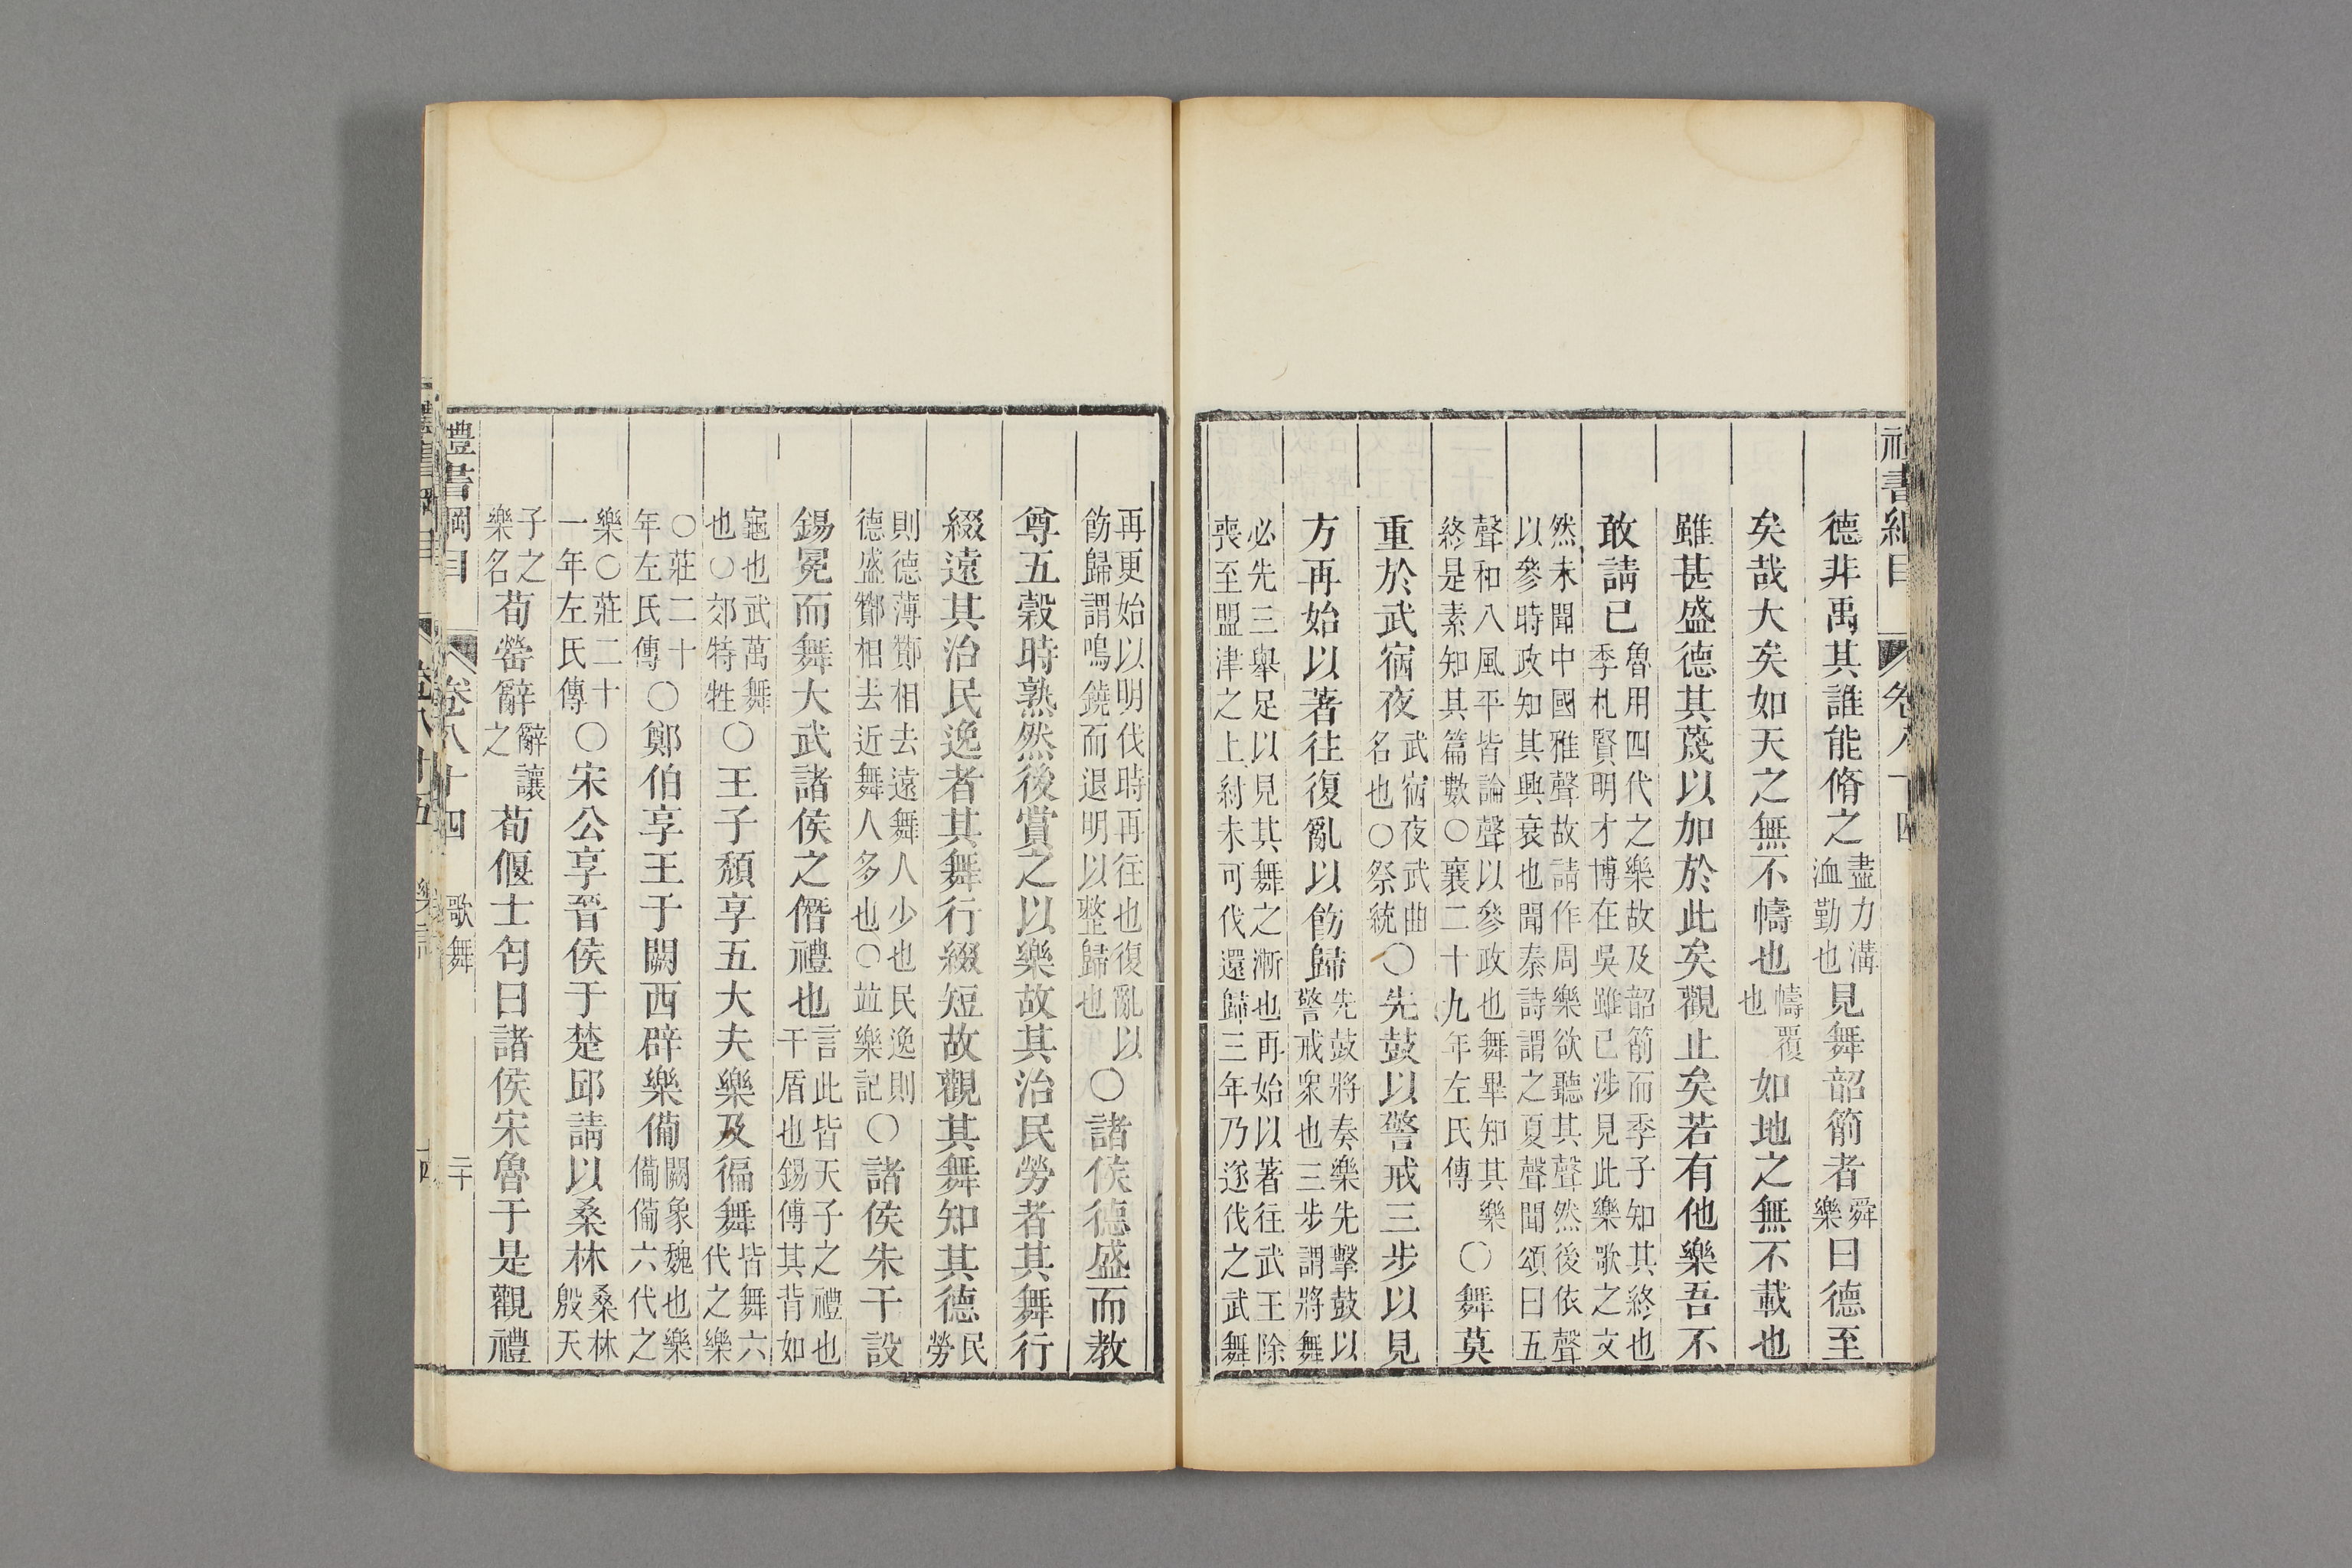 德非禹其誰能脩之盡力溝洫勤也見舞韶箾者舜樂曰德至
矣哉大矣如天之無不幬也幬覆也如地之無不載也
雖甚盛德其蔑以加於此矣觀止矣若有他樂吾不
敢請已魯用四代之樂故及韶箾而季子知其終也季札賢明才博在吳雖已涉見此樂歌之文
然未聞中國雅聲故請作周樂欲聽其聲然後依聲以參時政知其興衰也聞秦詩謂之夏聲聞頌曰五
聲和八風平皆論聲以參政也舞畢知其樂終是素知其篇數○襄二十九年左氏傳○舞莫
重於武宿夜武宿夜武曲名也○祭統○先鼓以警戒三步以見
方再始以著往復亂以飭歸先鼓將奏樂先擊鼓以警戒衆也三步謂將舞
必先三舉足以見其舞之漸也再始以著往武王除喪至盟津之上紂未可伐還歸三年乃遂伐之武舞
再更始以明伐時再往也復亂以飭歸謂鳴鐃而退明以整歸也○諸侯德盛而教
尊五穀時熟然後賞之以樂故其治民勞者其舞行
綴遠其治民逸者其舞行綴短故觀其舞知其德民勞
則德薄酇相去遠舞人少也民逸則德盛酇相去近舞人多也○竝樂記○諸侯朱干設
錫冕而舞大武諸侯之僭禮也言此皆天子之禮也干盾也錫傅其背如
龜也武萬舞也○郊特牲○王子頽享五大夫樂及徧舞皆舞六代之樂
○莊二十年左氏傳○鄭伯享王于闕西辟樂備闕象魏也樂備備六代之
樂○莊二十一年左氏傳○宋公享晉侯于楚邱請以桑林桑林殷天
子之樂名荀罃辭辭讓之荀偃士匄曰諸侯宋魯于是觀禮
禮書綱目 卷八十四 歌舞 二十